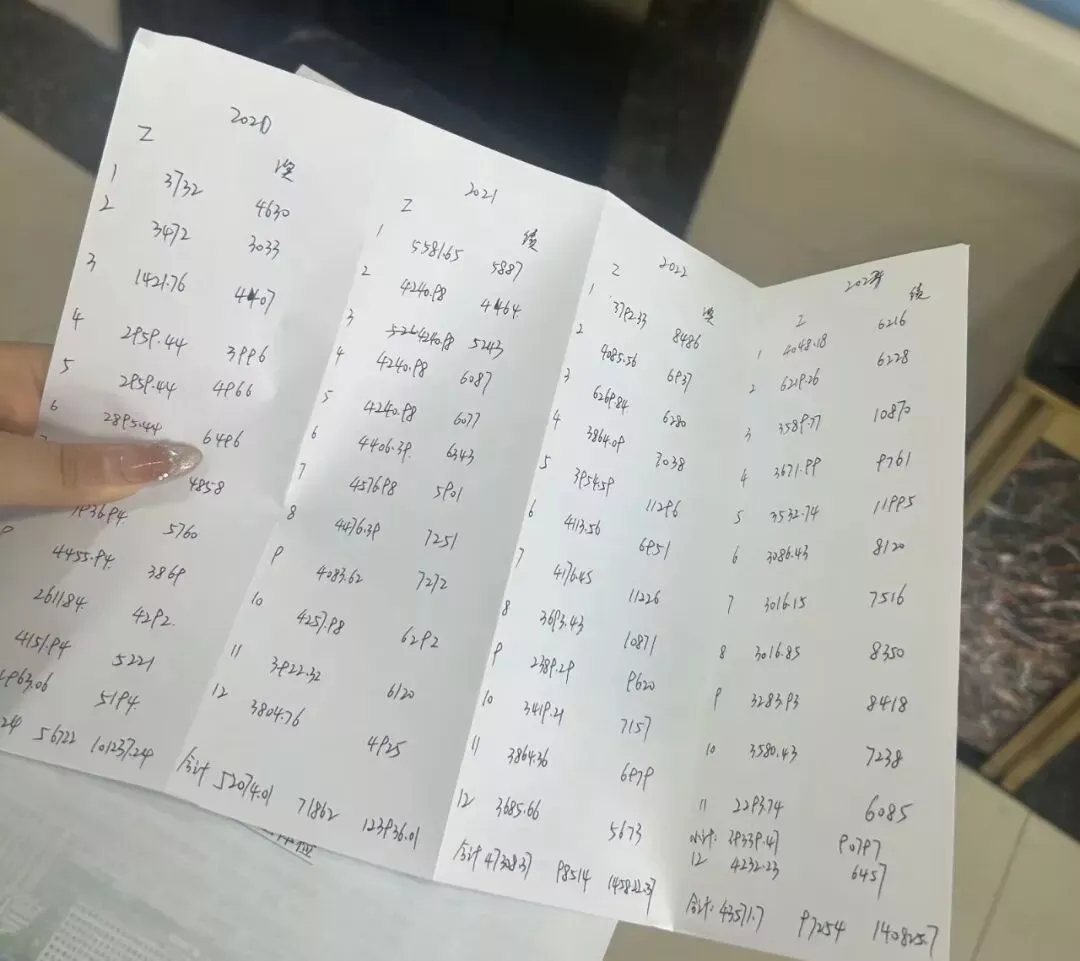 2020
Z 绩
1 3732 4630
2 3472 3033
3 1421.76 4407
4 2959.44 3996
5 2959.44 4966
6 2895.44 6496
4858
1936.94 5760
9 4455.94 3869
2611.84 4292
4151.94 5221
963.06 5194
24 56722 101237.24
2021
Z 绩
1 5581.65 5887
2 4240.98 4464
3 4240.98 5243
4 4240.98 6087
5 4240.98 6077
6 4406.39 6343
7 4576.98 5901
8 4476.39 7251
9 4083.62 7272
10 4257.98 6292
11 3922.32 6120
12 3804.76 4925
合计 52074.01 71862 123936.01
2022
Z 绩
1 3792.33 8486
2 4085.56 6937
3 6269.84 6280
4 3864.09 7038
5 3954.59 11296
6 4113.56 6951
7 4176.45 11226
8 3693.43 10871
9 2389.29 9620
10 3419.21 7157
11 3864.36 6979
12 3685.66 5673
合计 47308.37 98514 145822.37
2023年
Z 绩
1 4048.18 6216
2 6219.26 6228
3 3589.77 10870
4 3671.99 9761
5 3532.74 11995
6 3086.43 8120
7 3016.15 7516
8 3016.85 8350
9 3283.93 8418
10 3580.43 7238
11 2293.74 6085
小计: 39339.47 90797
12 4232.23 6457
合计: 43571.7 97254 140825.7